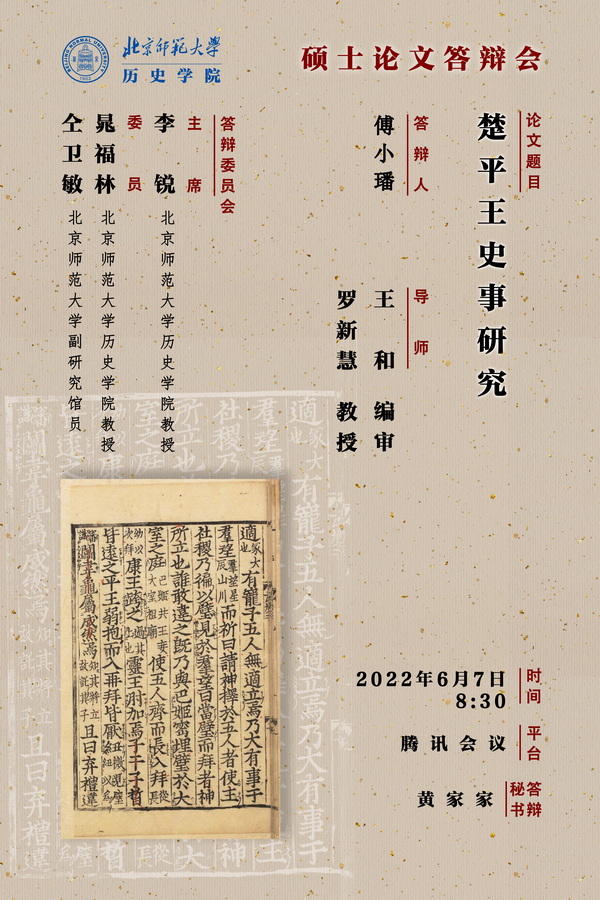 北京师范大学
历史学院
BEIJING NORMAL UNIVERSITY
1902
硕士论文答辩会
论文题目
楚平王史事研究
答辩人
傅小璠
导师
王和 编审
罗新慧 教授
答辩委员会
主席
李锐 北京师范大学历史学院教授
委员
晁福林 北京师范大学历史学院教授
仝卫敏 北京师范大学副研究馆员
时间
2022年6月7日
8:30
平台
腾讯会议
答辩秘书
黄家家
適冢大也有寵子五人無適立焉乃大有事于
羣望羣望星辰山川而祈曰請神擇於五人者使主
社稷乃徧以璧見於羣望曰當璧而拜者神
所立也誰敢違之旣乃與巴姬密埋璧於大
室之庭巴姬共王妾大室祖廟使五人齊而長入拜從長
幼以次拜康王跨之過其上也靈王肘加焉子干子晳
皆遠之平王弱抱而入再拜皆厭紐
鬭韋龜屬成然焉知其將立故託其子且曰弃禮違